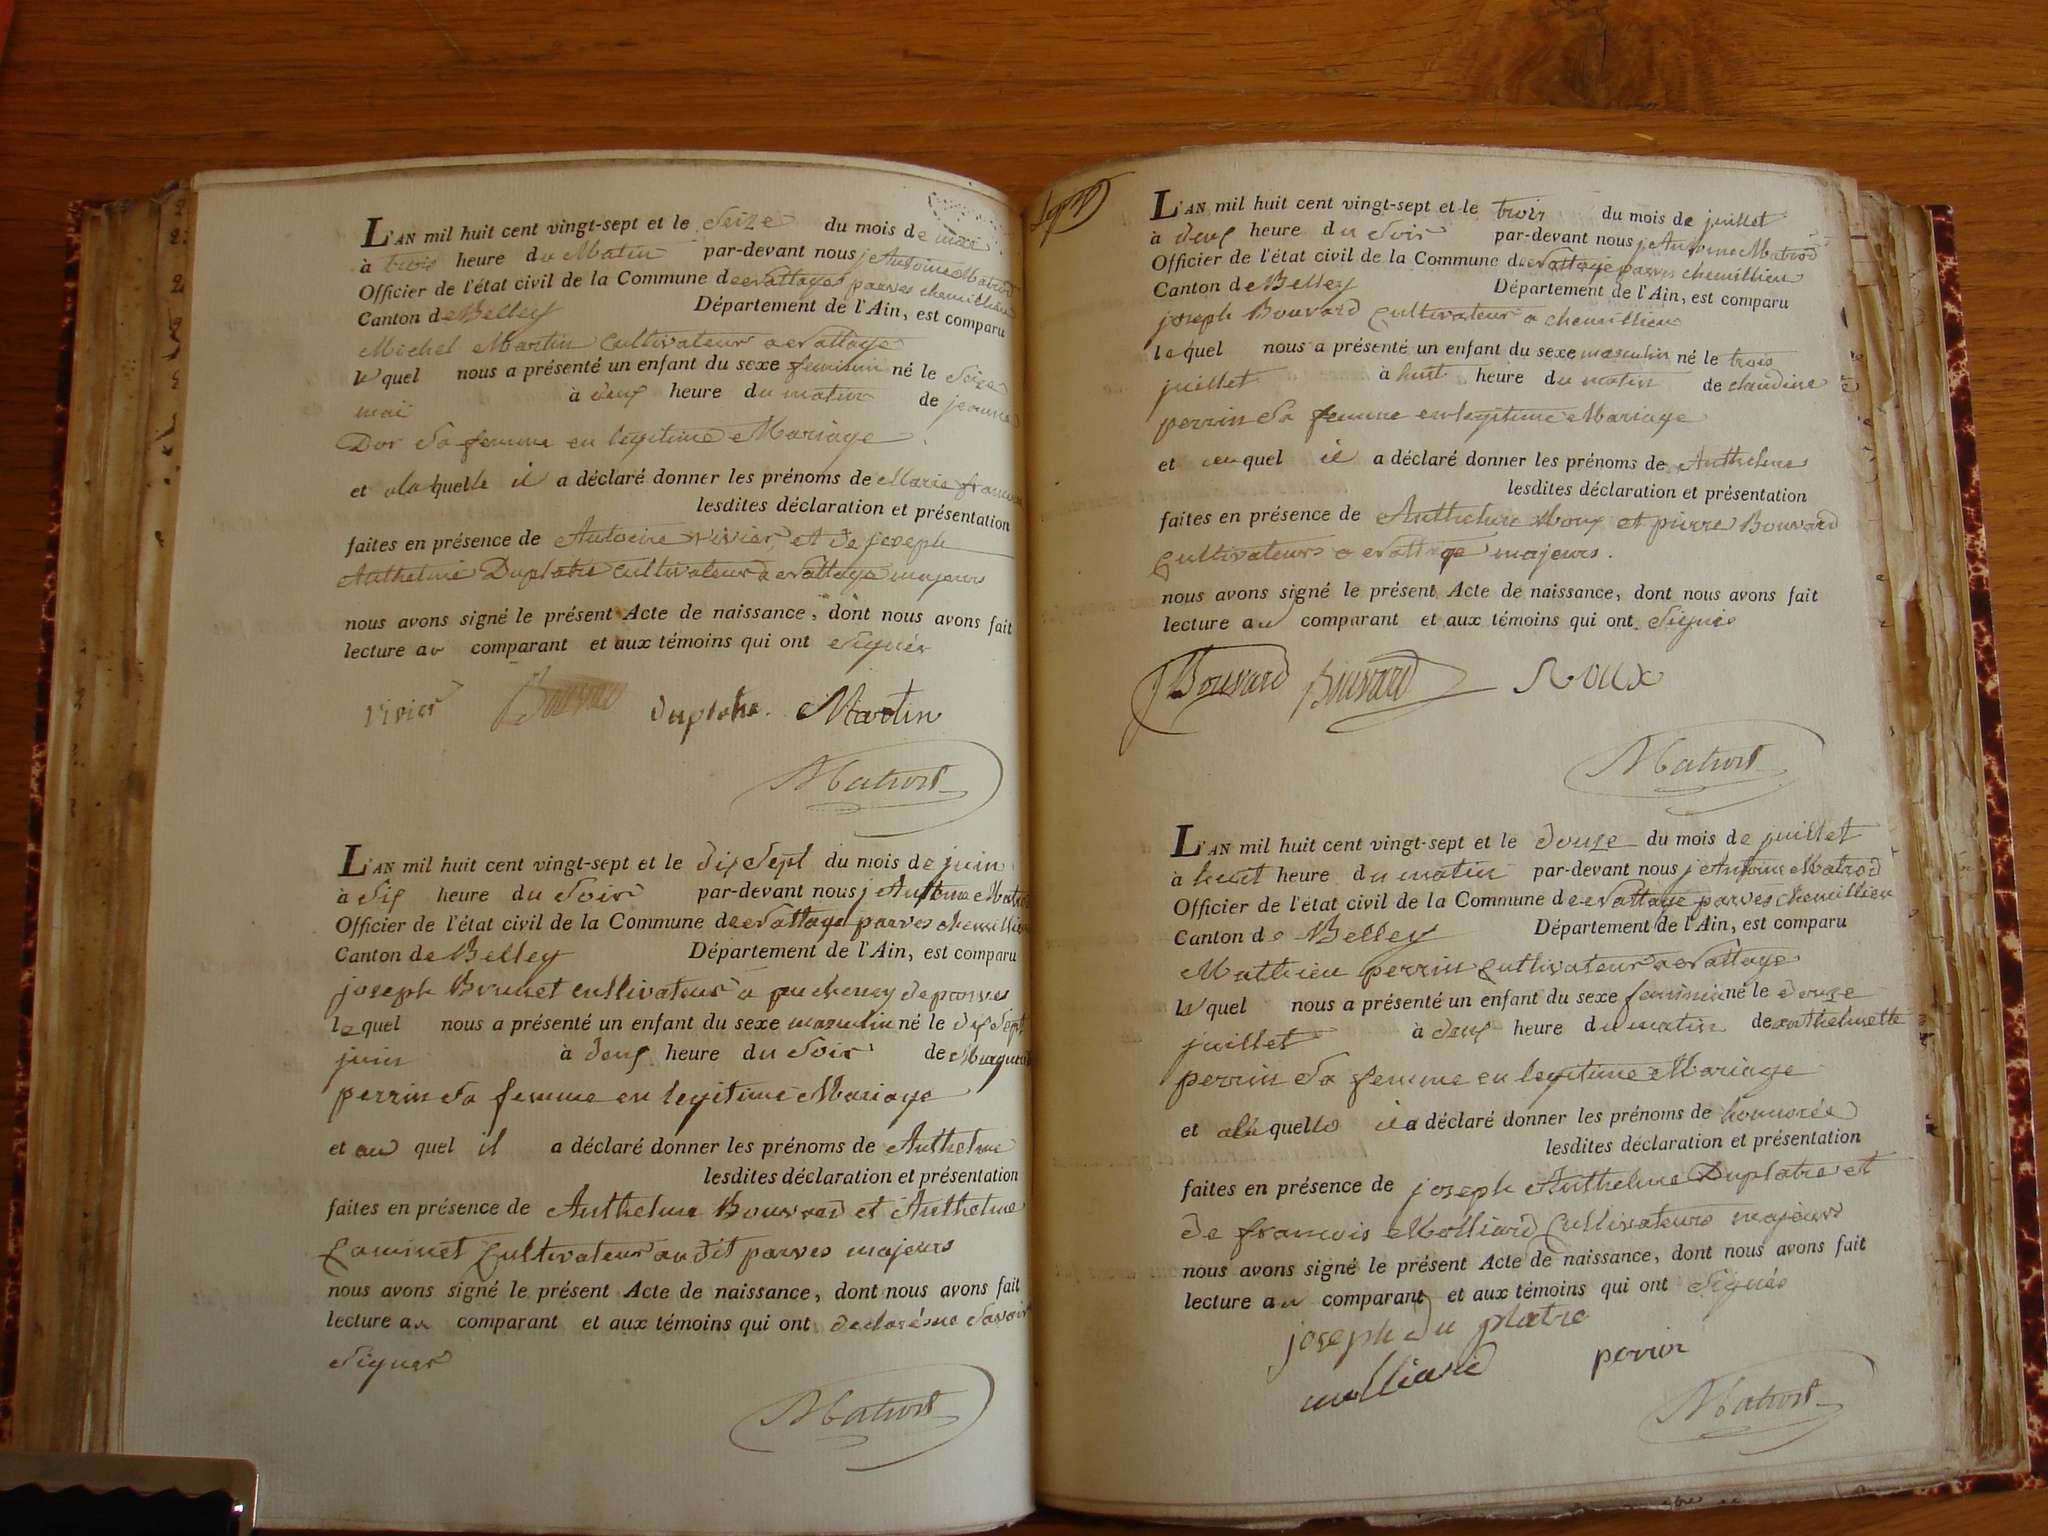 L'AN mil huit cent vingt-sept et le Seize du mois de mai
à trois heure du Matin par-devant nous j Antoine Matrod
Officier de l'état civil de la Commune de parves chemillieu
Canton de Belley Département de l'Ain, est comparu
Michel Martin Cultivateur a
le quel nous a présenté un enfant du sexe feminin né le Seize
mai à deux heure du matin de jeanne
Dor Sa femme en legitime Mariage
et a la quelle il a déclaré donner les prénoms de Marie
lesdites déclaration et présentation
faites en présence de Antoine vivier et de joseph
Anthelme Duplatre cultivateur a majeurs
nous avons signé le présent Acte de naissance, dont nous avons fait
lecture au comparant et aux témoins qui ont Signés
vivier duplatre Martin
Matrod
L'AN mil huit cent vingt-sept et le dix Sept du mois de juin
à Six heure du Soir par-devant nous j Antoine
Officier de l'état civil de la Commune de parves chemillieu
Canton de Belley Département de l'Ain, est comparu
joseph Brunet cultivateur a de parves
le quel nous a présenté un enfant du sexe masculin né le dix Sept
juin à deux heure du Soir de
perrin Sa femme en legitime Mariage
et au quel il a déclaré donner les prénoms de Anthelme
lesdites déclaration et présentation
faites en présence de Anthelme Bouvard et Anthelme
Cultivateur au dit parves majeurs
nous avons signé le présent Acte de naissance, dont nous avons fait
lecture au comparant et aux témoins qui ont declarés ne Savoir
Signer
Matrod
L'AN mil huit cent vingt-sept et le trois du mois de juillet
à deux heure du Soir par-devant nous j Antoine Matrod
Officier de l'état civil de la Commune de parves chemillieu
Canton de Belley Département de l'Ain, est comparu
joseph Bouvard Cultivateur a chemillieu
le quel nous a présenté un enfant du sexe masculin né le trois
juillet à huit heure du matin de claudine
perrin Sa femme en legitime Mariage
et au quel il a déclaré donner les prénoms de Anthelme
lesdites déclaration et présentation
faites en présence de Anthelme Roux et pierre Bouvard
Cultivateurs a majeurs.
nous avons signé le présent Acte de naissance, dont nous avons fait
lecture au comparant et aux témoins qui ont Signés
J Bouvard Bouvard Roux
Matrod
L'AN mil huit cent vingt-sept et le douze du mois de juillet
à heure du matin par-devant nous j Antoine Matrod
Officier de l'état civil de la Commune de parves chemillieu
Canton de Belley Département de l'Ain, est comparu
Mathieu perrin Cultivateur a
le quel nous a présenté un enfant du sexe feminin né le douze
juillet à deux heure du matin de anthelmette
perrin Sa femme en legitime Mariage
et a la quelle il a déclaré donner les prénoms de honnorée
lesdites déclaration et présentation
faites en présence de joseph Anthelme Duplatre et
de francois Molliard Cultivateurs majeurs
nous avons signé le présent Acte de naissance, dont nous avons fait
lecture au comparant et aux témoins qui ont Signés
joseph du platre
molliard perrin
Matrod